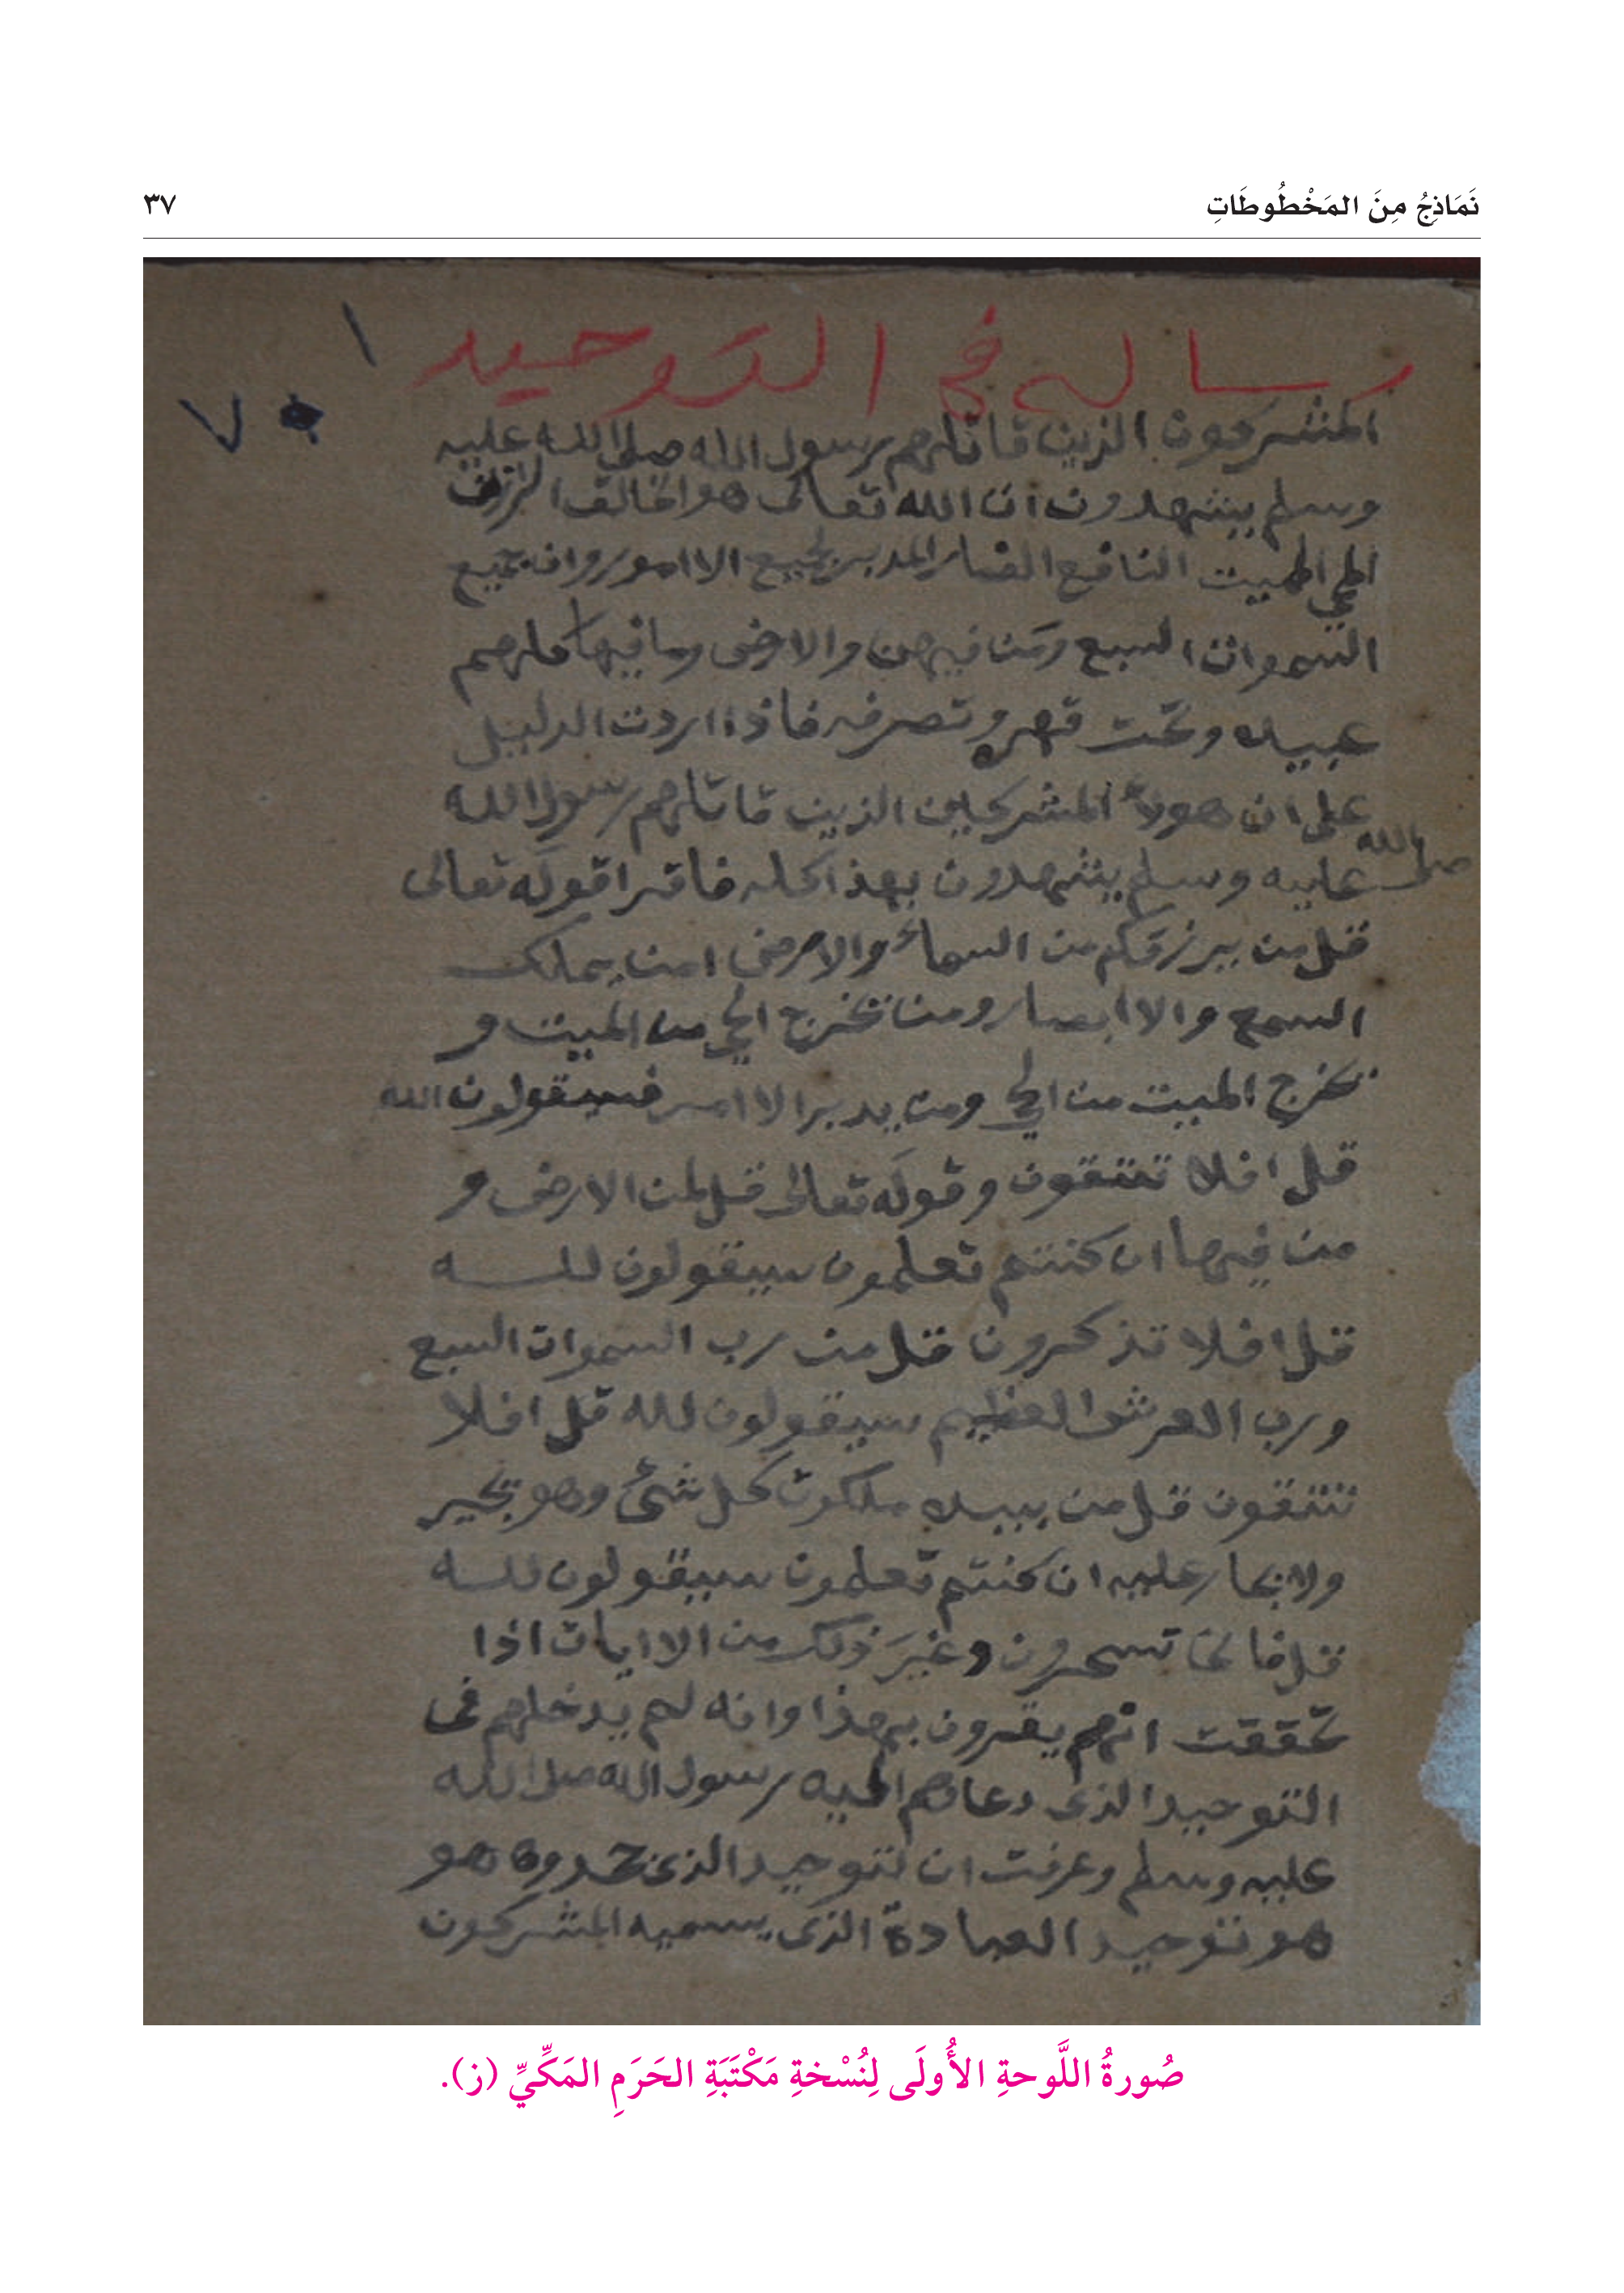 نَمَاذِجُ مِنَ المَخْطُوطَاتِ
٣٧
رساله في التوحيد
١
٧
المشركون الذين قاتلهم رسول الله صلى الله عليه
وسلم يشهدون ان الله تعالى هو الخالق الرازق
المحي المميت النافع الضار المدبر لجميع الاامور وان جميع
السموات السبع ومن فيهن والارض وما فيها كلهم
عبيده وتحت قهره وتصرفه فاذا اردت الدليل
على ان هولاء المشركين الذين قاتلهم رسول الله
صلى الله عليه وسلم يشهدون بهذا كله فاقرا قوله تعالى
قل من يرزقكم من السماء والارض امن يملك
السمع والاابصار ومن يخرج الحي من الميت و
يخرج الميت من الحي ومن يدبر الاامر فسيقولون الله
قل افلا تتقون وقوله تعالى قل لمن الارض و
من فيها ان كنتم تعلمون سيقولون لله
قل افلا تذكرون قل من رب السموات السبع
ورب العرش العظيم سيقولون لله قل افلا
تتقون قل من بيده ملكوت كل شئ وهو يجير
ولا يجار عليه ان كنتم تعلمون سيقولون لله
قل فانى تسحرون وغير ذلك من الاايات اذا
تحققت انهم يقرون بهذا وانه لم يدخلهم في
التوحيد الذي دعاهم اليه رسول الله صلى الله
عليه وسلم وعرفت ان لتوحيد الذي جحدوه هو
هو توحيد العبادة الذي يسميه المشركون
صُورةُ اللَّوحةِ الأُولَى لِنُسْخةِ مَكْتَبَةِ الحَرَمِ المَكِّيِّ (ز).